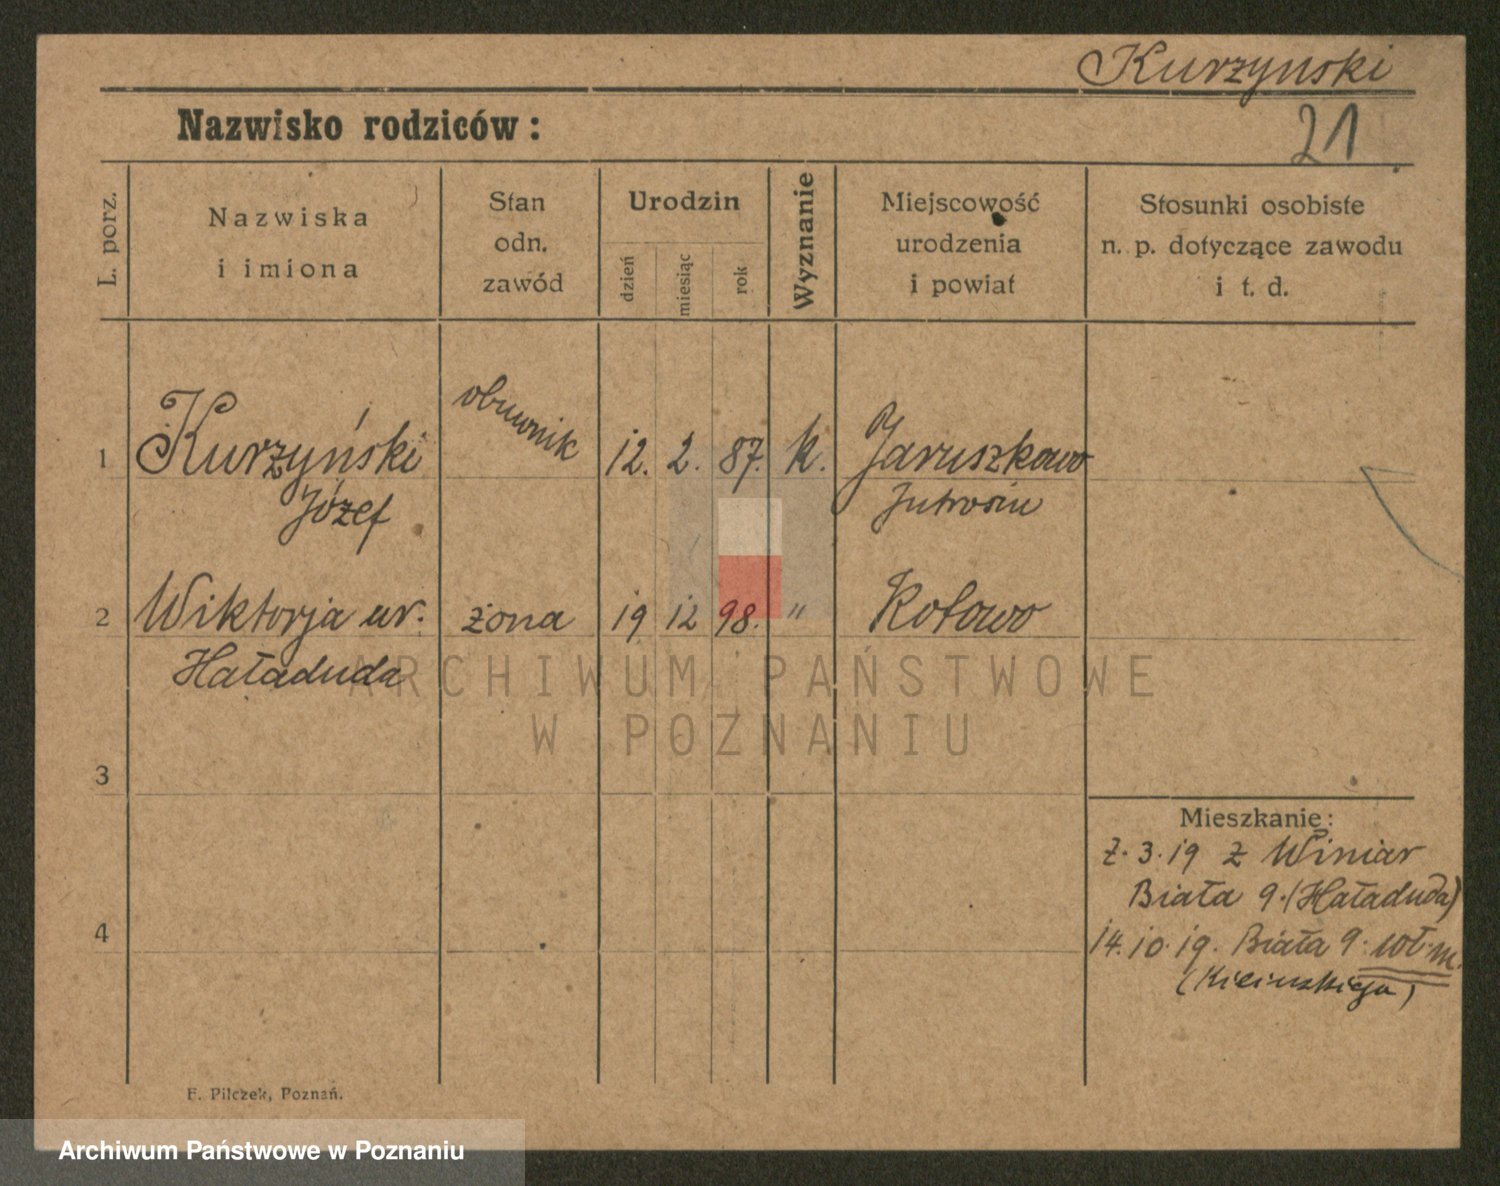 Kurzynski
Nazwisko rodziców:
21
L. porz.
Nazwiska
i imiona
Stan
odn.
zawód
Urodzin
dzień
miesiąc
rok
Wyznanie
Miejscowość
urodzenia
i powiat
Stosunki osobiste
n. p. dotyczące zawodu
i t. d.
1
Kurzyński
Józef
obuwnik
12. 2. 87. k.
Jaruszkowo
Jutrosin
2
Wiktorja ur.
Haładuda
żona
19 12 98. "
Kołowo
ARCHIWUM PAŃSTWOWE
W POZNANIU
3
4
Mieszkanie:
3.19 z Winiar
Biała 9. (Haładuda)
14.10.19. Biała 9. wł. m.
F. Pilczek, Poznań.
Archiwum Państwowe w Poznaniu